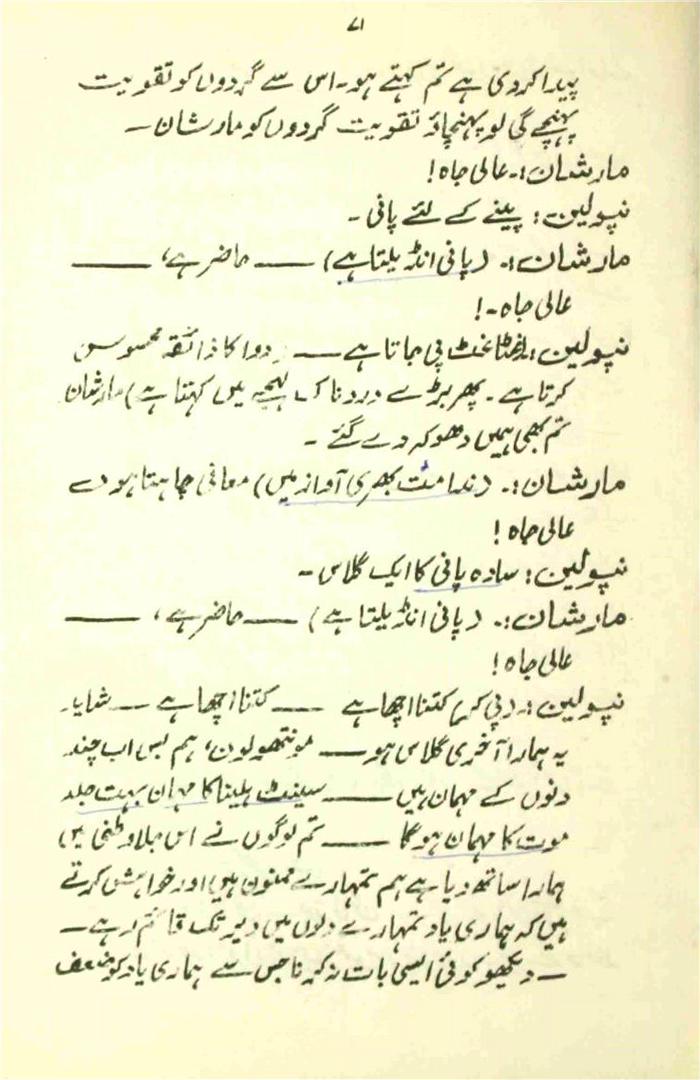 ۷۱
پیدا کر دی ہے تم کہتے ہو۔ اس سے گردوں کو تقویت
پہنچے گی لو پہنچاؤ تقویت گردوں کو مارشان —
مارشان:۔ عالی جاہ!
نپولین: پینے کے لئے پانی ۔
مارشان:۔ (پانی انڈیلتا ہے) —— حاضر ہے، ——
عالی جاہ۔!
نپولین: (غٹاغٹ پی جاتا ہے —— دوا کا ذائقہ محسوس
کرتا ہے۔ پھر بڑے دردناک لہجے میں کہتا ہے) مارشان
تم بھی ہمیں دھوکہ دے گئے ۔
مارشان:۔ (ندامت بھری آواز میں) معافی چاہتا ہوں
عالی جاہ!
نپولین: سادہ پانی کا ایک گلاس ۔
مارشان:۔ (پانی انڈیلتا ہے) —— حاضر ہے، ——
عالی جاہ!
نپولین:۔ (پی کر) کتنا اچھا ہے —— کتنا اچھا ہے —— شاید
یہ ہمارا آخری گلاس ہو —— مونتھولون، ہم بس اب چند
دنوں کے مہمان ہیں —— سینٹ ہلینا کا مہمان بہت جلد
موت کا مہمان ہو گا —— تم لوگوں نے اس جلاوطنی میں
ہمارا ساتھ دیا ہے ہم تمہارے ممنون ہیں اور خواہش کرتے
ہیں کہ ہماری یاد تمہارے دلوں میں دیر تک قائم رہے —
— دیکھو کوئی ایسی بات نہ کرنا جس سے ہماری یاد کو ضعف